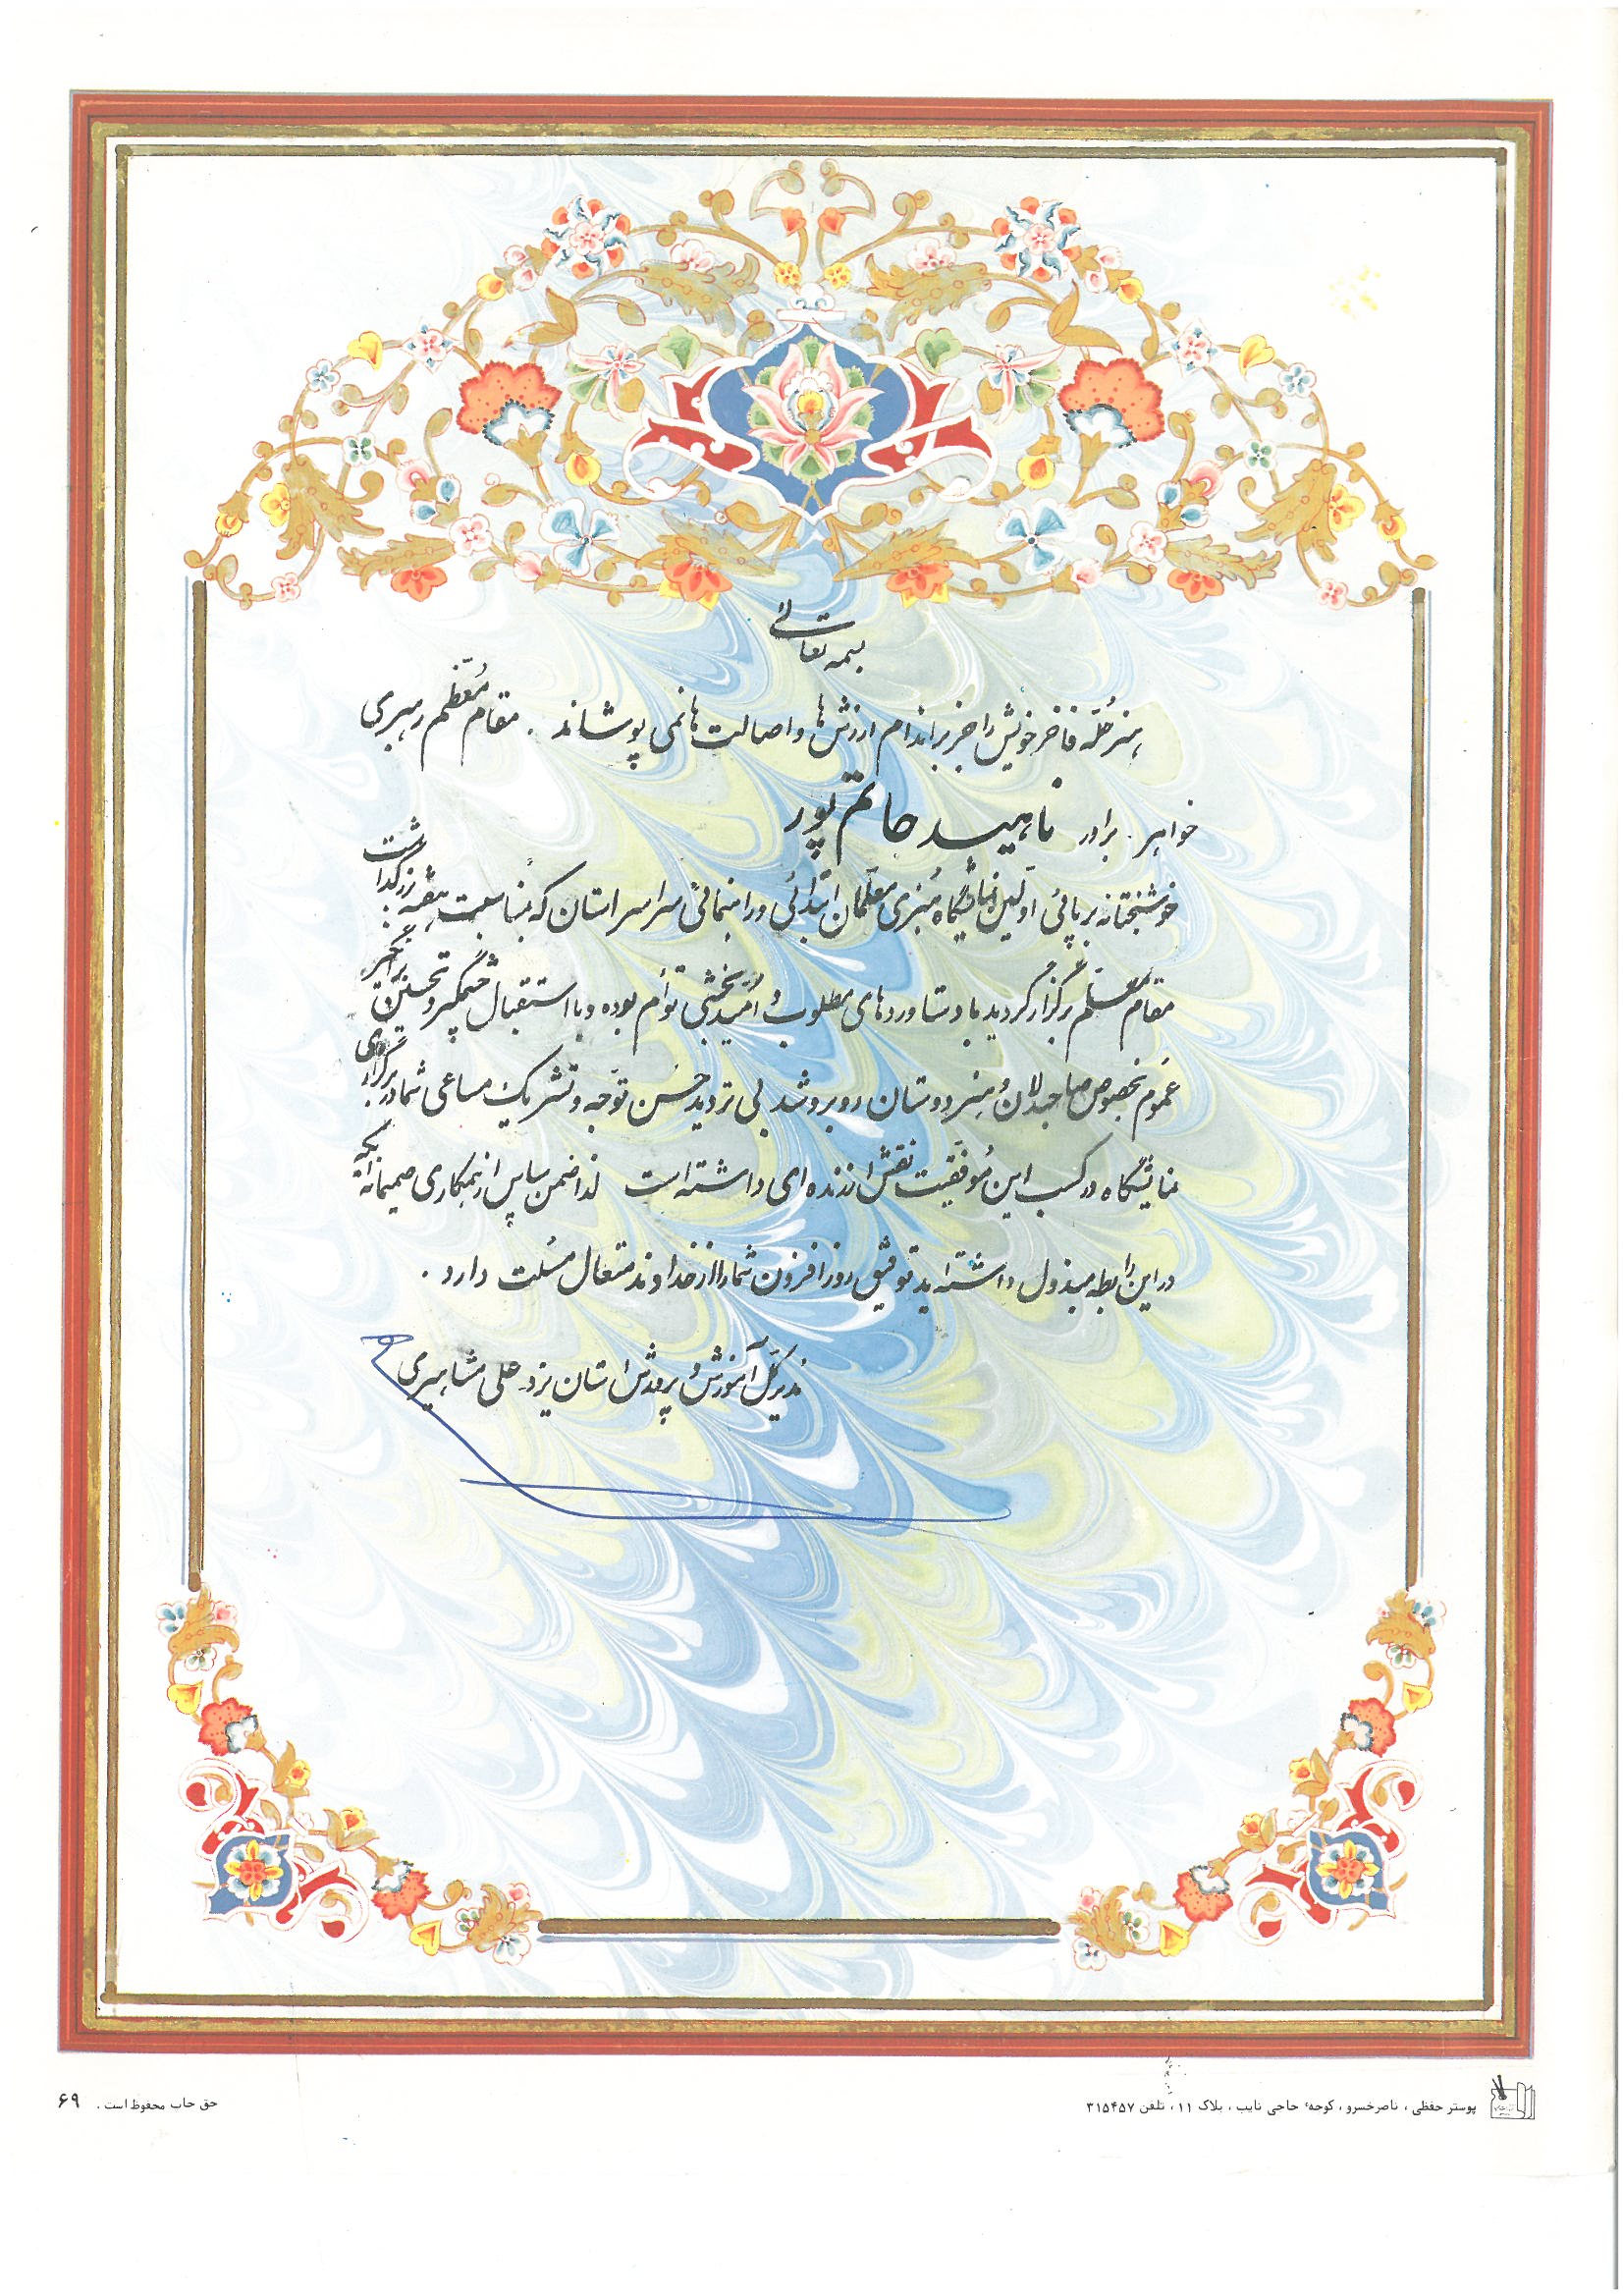 بسمه تعالی
هنر حُلّه فاخر خویش را جز بر اندام ارزش‌ها و اصالت‌ها نمی پوشاند . مقام مُعظّم رهبری
خواهر . برادر ناهید حاتم پور
خوشبختانه برپائی اوّلین نمایشگاه هنری معلّمان ابتدائی و راهنمائی سراسر استان که بمناسبت هفته بزرگداشت
مقام معلّم برگزار گردید با دستاوردهای مطلوب و اُمیدبخشی توأم بوده و با استقبال چشمگیر و تحسین برانگیز
عُموم بخصوص صاحبدلان و هنردوستان روبرو شد بی تردید حُسن توجّه و تشریک مساعی شما در برگزاری
نمایشگاه در کسب این مُوفقیّت نقش ارزنده ای داشته است لذا ضمن سپاس از همکاری صمیمانه ایکه
در این رابطه مبذول داشته اید توفیق روزافزون شما را از خداوند متعال مسئلت دارد .
مدیرکلّ آموزش و پرورش استان یزد - علی مشاهیری
پوستر حفظی ، ناصرخسرو ، کوچهٔ حاجی نایب ، پلاک ۱۱ ، تلفن ۳۱۵۴۵۷
حق چاپ محفوظ است . ۶۹